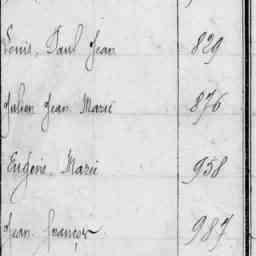 Louis, Paul Jean 829
Julien Jean Marie 876
Eugène, Marie 958
Jean François 987